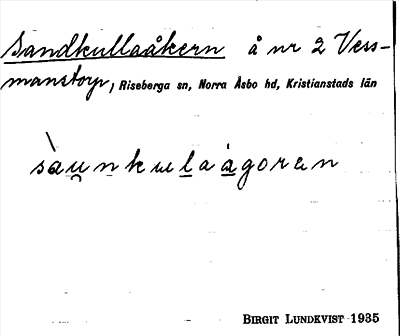 Sandkullaåkern å nr 2 Vess-
manstorp, Riseberga sn, Norra Åsbo hd, Kristianstads län
sàu̯n̠kul̠aágorεn
BIRGIT LUNDKVIST 1935